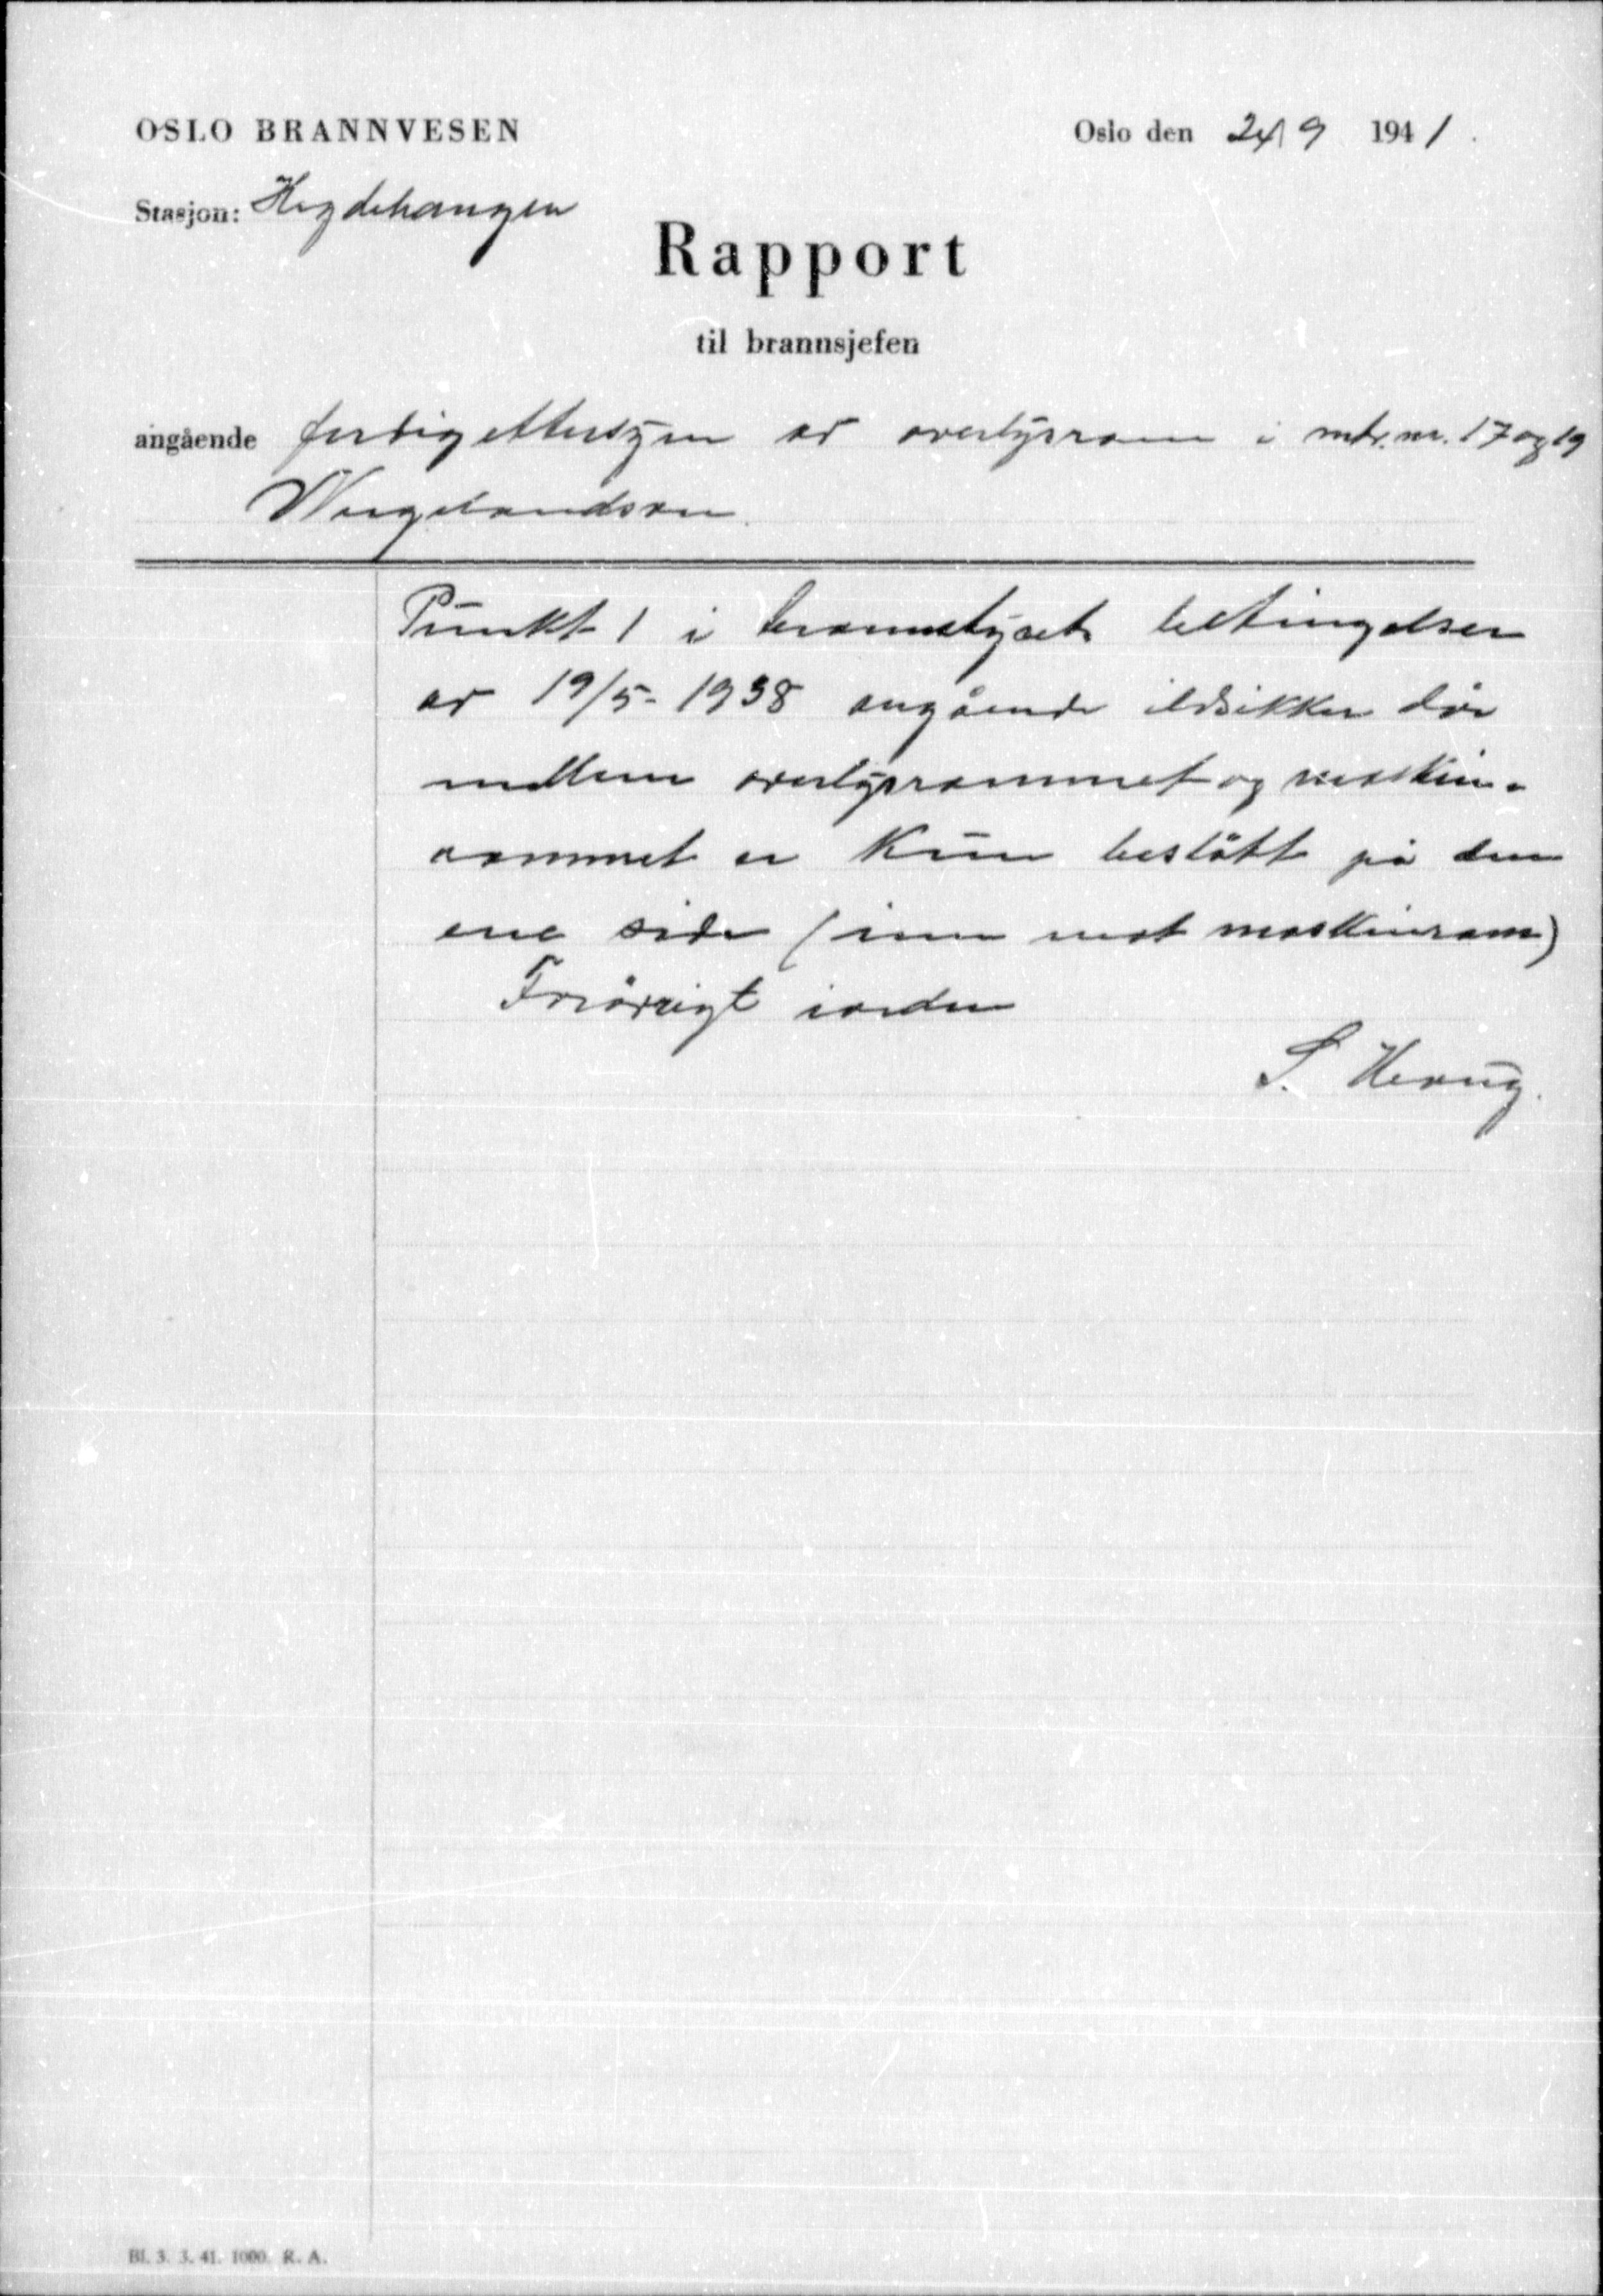 OSLO BRANNVESEN
Oslo den 24/9 1941.
Stasjon: Hegdehaugen
Rapport
til brannsjefen
angående ferdigettersyn av overlysrom i mtr. nr. 17 og 19
Wergelandsvn.
Punkt 1 i brannstyrets betingelser
av 19/5- 1938 angående ildsikker dør
mellem overlysrommet og maskin-
rommet er kun beslått på den
ene side (inn mot maskinrom)
Forøvrigt iorden
S.
Bl. 3. 3. 41. 1000. R. A.